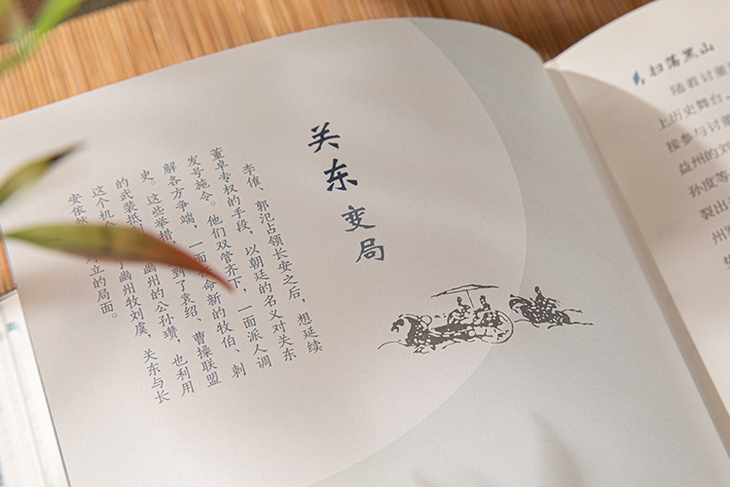 关东变局
李傕、郭汜占领长安之后，想延续
董卓专权的手段，以朝廷的名义对关东
发号施令。他们双管齐下，一面派人调
解各方争端，一面命新的牧伯、刺
史。这些举措，到了袁绍、曹操联盟
的武装抵幽州的公孙瓒，也利用
这个机了幽州牧刘虞，关东与长
安依立的局面。
扫荡黑山
随着讨董
上历史舞台、
接参与讨
益州的刘
孙度等
裂出
州
如